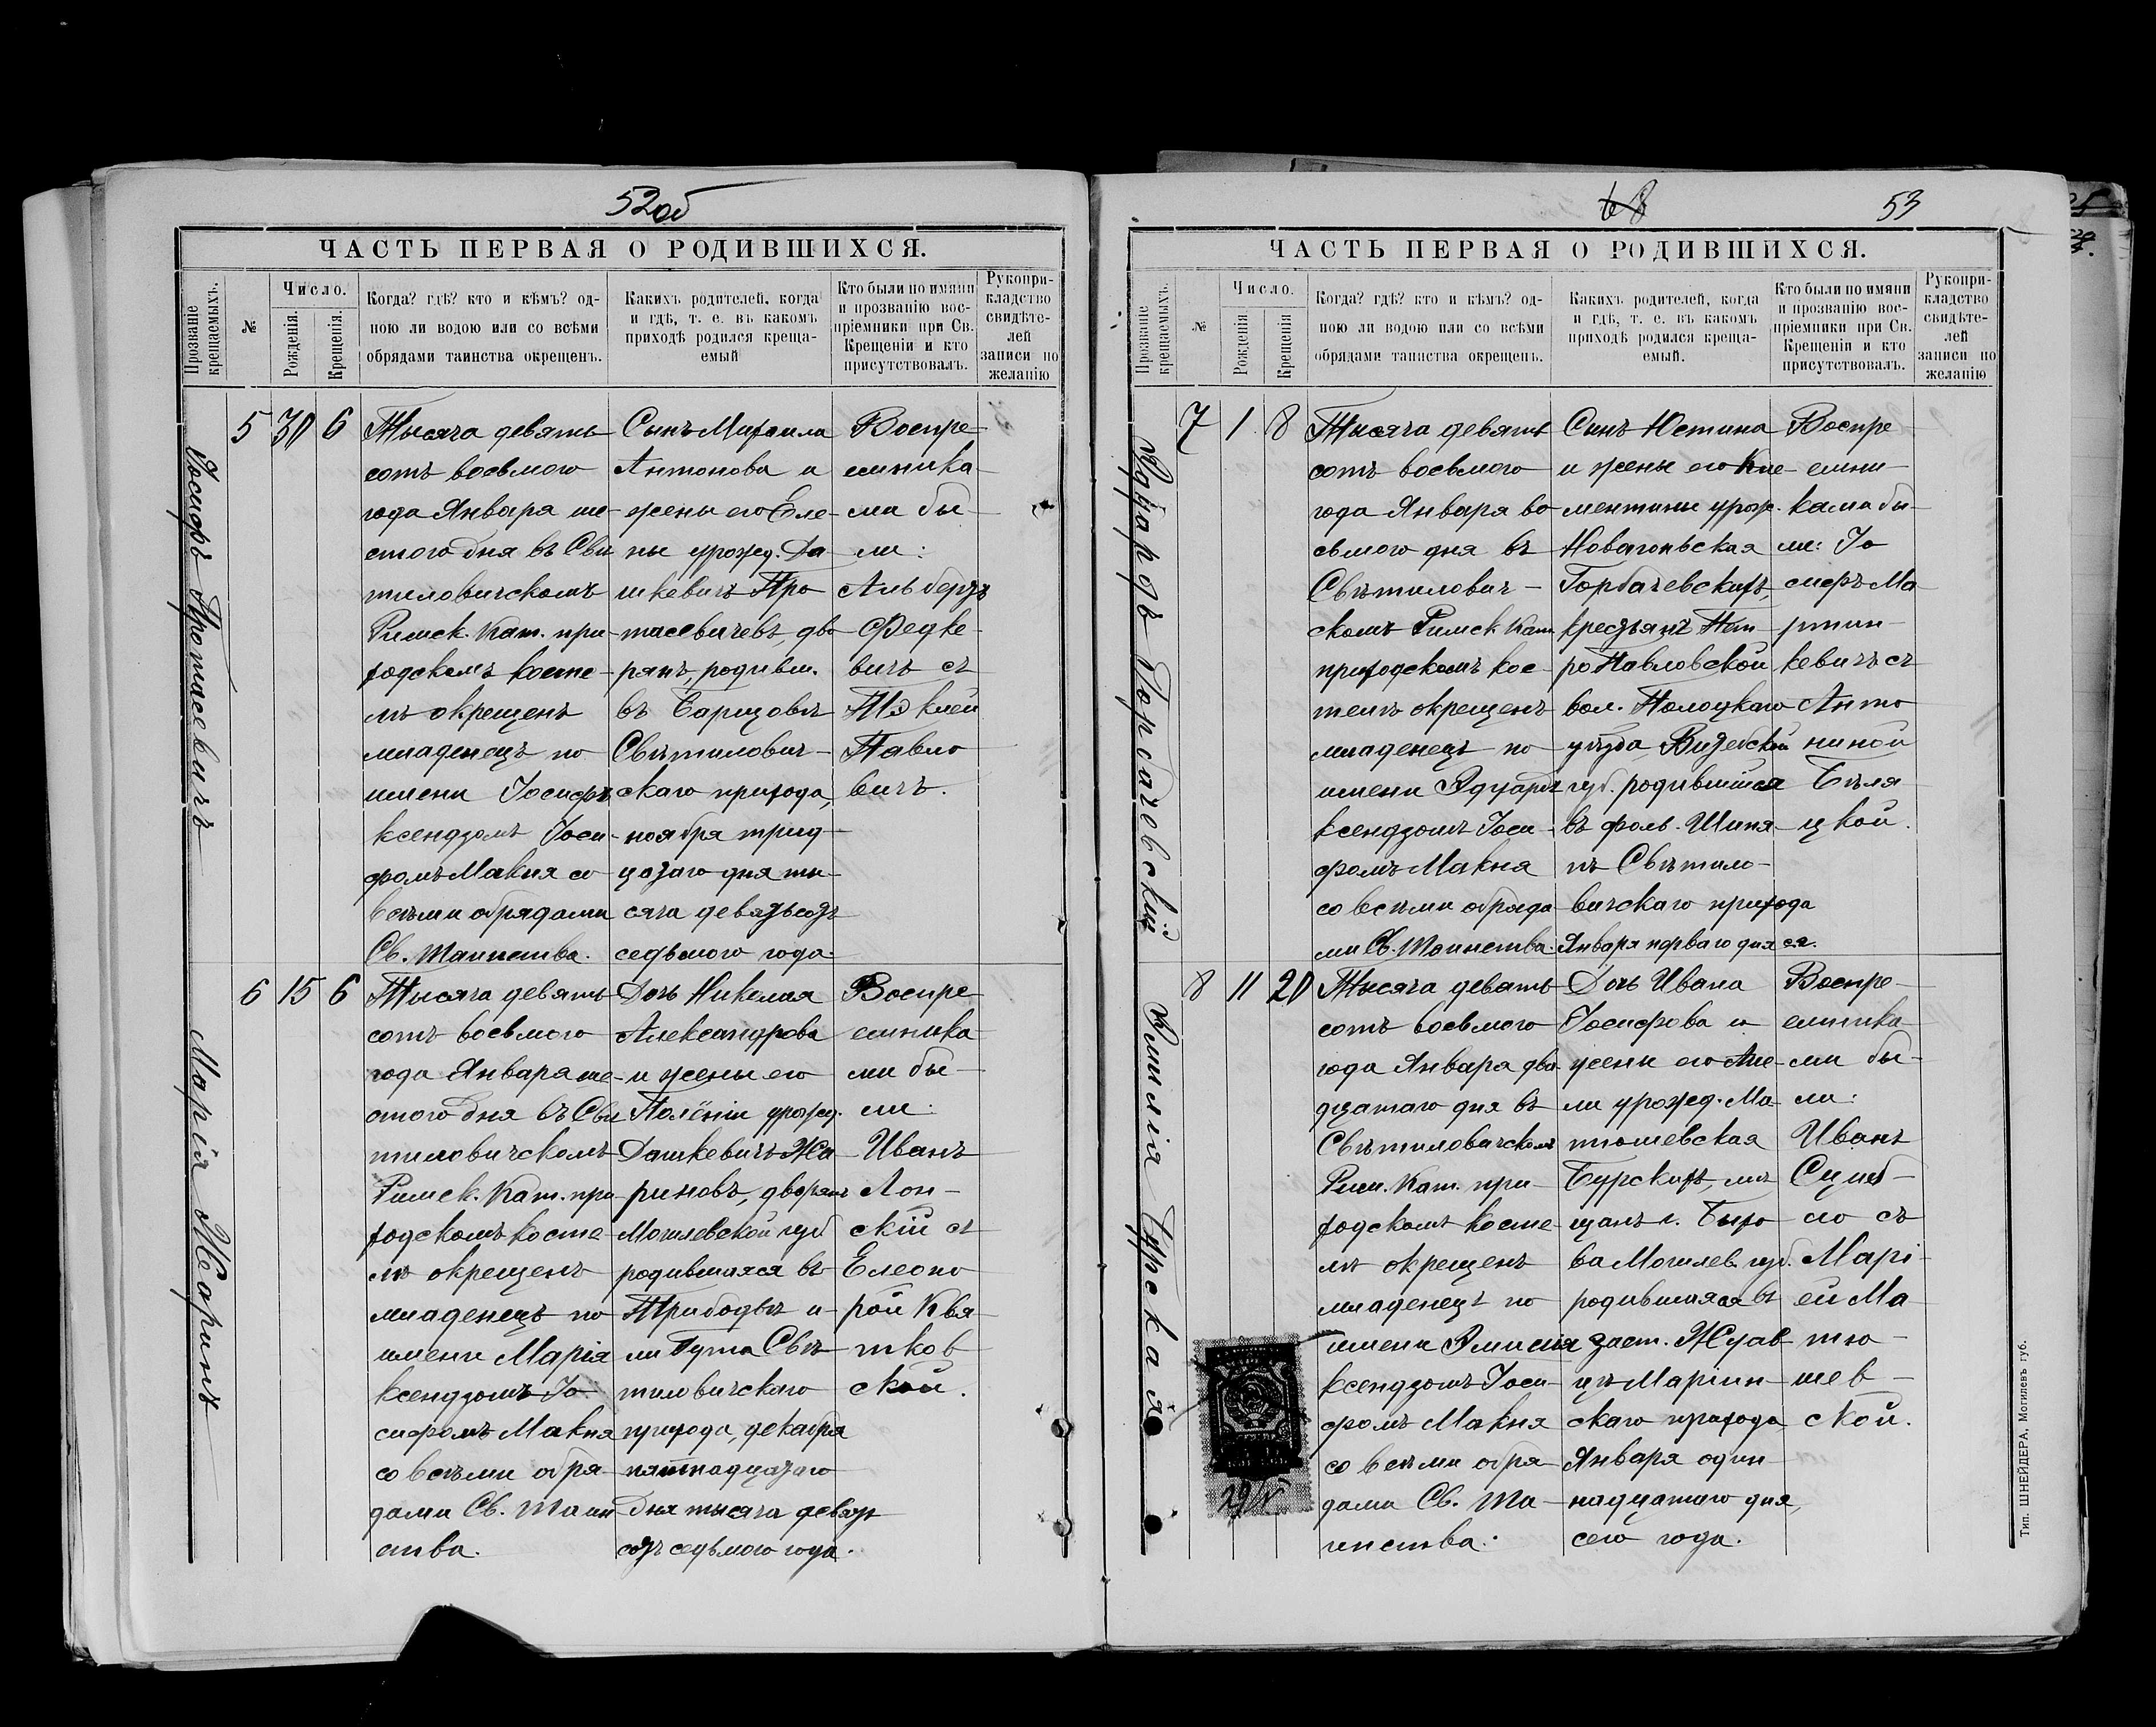 52об
ЧАСТЬ ПЕРВАЯ О РОДИВШИХСЯ.
Прозваніе крещаемыхъ.
№
Число.
Рожденія.
Крещенія.
Когда? гдѣ? кто и кѣмъ? од-
ною ли водою или со всѣми
обрядами таинства окрещенъ.
Какихъ родителей, когда
и гдѣ, т. е. въ какомъ
приходѣ родился креща-
емый
Кто были по имяни
и прозванію вос-
пріемники при Св.
Крещеніи и кто
присутствовалъ.
Рукопри-
кладство
свидѣте-
лей
записи по
желанію
Іосифъ Протасевичъ
5 30 6
Тысяча девять-
сотъ восьмого
года Января ше-
стого дня въ Свѣ
тиловичскомъ
Римск. Кат. при-
ходскомъ косте-
лѣ окрещенъ
младенецъ по
имени Іосифъ
ксендзомъ Іоси-
фомъ Макня со
всѣми обрядами
Св. Таинства.
Сынъ Михаила
Антонова и
жены его Еле-
ны урожд. Да
шкевичъ Про
тасевичевъ, дво
рянъ, родивш.
въ Барцовѣ
Свѣтилович-
скаго прихода,
ноября трид-
цатаго дня ты-
сяча девятьсотъ
седьмого года.
Воспре
емника
ми бы-
ли:
Альбертъ
Федке-
вичъ съ
Павло
вичъ.
Марія Жаринъ
6 15 6
Тысяча девять-
сотъ восьмого
года Января ше-
стого дня въ Свѣ
тиловичскомъ
Римск. Кат. при
ходскомъ косте
лѣ окрещенъ
младенецъ по
имени Марія
ксендзомъ Іо-
сифомъ Макня
со всѣми обря-
дами Св. Таин
ства.
Дочь Николая
Александрова
и жены его
урожд.
Дашкевичъ Жа
риновъ, дворянъ
Могилевской губ
родившаяся въ
Свѣ-
тиловичскаго
прихода, декабря
пятнадцатаго
дня тысяча девять
сотъ седьмого года.
Воспре
емника
ми бы-
ли:
Иванъ
Лон-
скій съ
Елеоно
рой Квя
тков
ской.
68
53
ЧАСТЬ ПЕРВАЯ О РОДИВШИХСЯ.
Прозваніе крещаемыхъ.
№
Число.
Рожденія
Крещенія
Когда? гдѣ? кто и кѣмъ? од-
ною ли водою или со всѣми
обрядами таинства окрещенъ.
Какихъ родителей, когда
и гдѣ, т. е. въ какомъ
приходѣ родился креща-
емый.
Кто были по имяни
и прозванію вос-
пріемники при Св.
Крещеніи и кто
присутствовалъ.
Рукопри-
кладство
свидѣте-
лей
записи по
желанію
Эдуардъ Горбачевскій
7 1 8
Тысяча девять
сотъ восьмого
года Января во
сьмого дня въ
Свѣтилович-
скомъ Римск. Кат
приходскомъ кос-
телѣ окрещенъ
младенецъ по
имени Эдуардъ
ксендзомъ Іоси-
фомъ Макня
со всѣми обряда
ми Св. Таинства.
Сынъ Юстина
и жены его Кле-
ментины урож.
Горбачевскихъ,
крестьянъ Пет-
ро Павловской
вол. Полоцкаго
уѣзда Витебской
губ. родившійся
въ фольв. Шиня-
Свѣтило-
вичскаго прихода
Января перваго дня сг.
Воспре
емни-
ками бы-
ли: Іо
сифъ Ма
ртин-
кевичъ съ
Анто
ниной
Бѣля
цкой.
Эмилія Бурская
8 11 20
Тысяча девять
сотъ восьмого
года Января два
дцатаго дня въ
Свѣтиловичскомъ
Рим. Кат. при-
ходскомъ косте-
лѣ окрещенъ
младенецъ по
имени Эмилія
ксендзомъ Іоси-
фомъ Макня
со всѣми обря-
дами Св. Та-
инства.
Дочь Ивана
Іосифова и
жены его Аме-
ли урожд. Ма-
тюшевская
Бурскихъ, мѣ
щанъ г. Быхо
ва Могилев. губ.
родившаяся въ
заст.
скаго прихода
Января один
надцатаго дня,
сего года.
Воспре-
емника-
ми бы-
ли:
Иванъ
съ
Марі-
ей Ма
тю-
шев-
ской.
Тип. ШНЕЙДЕРА, Могилевъ губ.